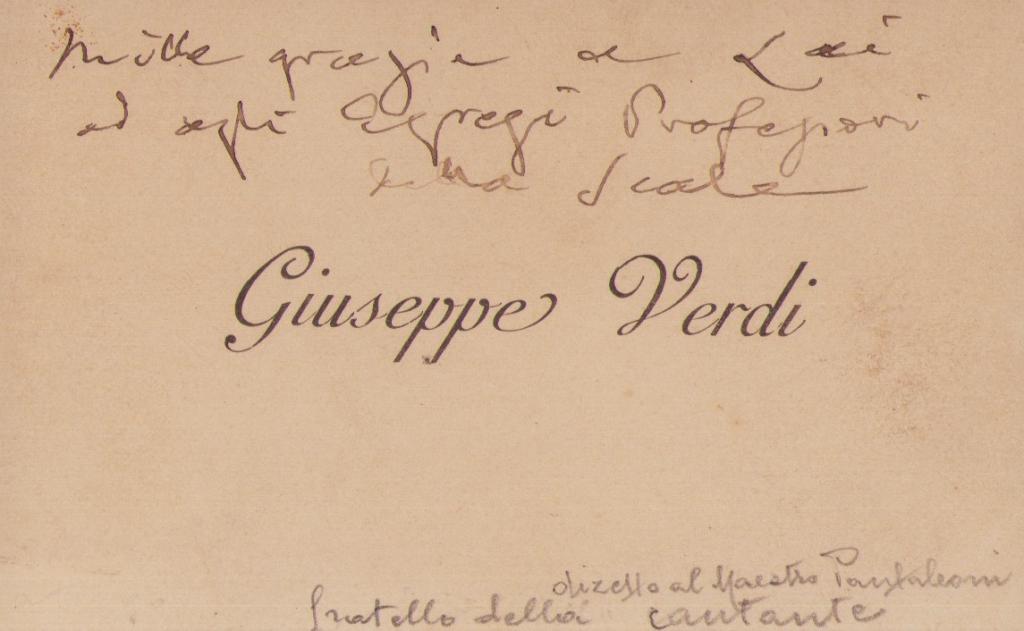 Mille grazie a Lei
ed agli Egregi Professori
della Scala
Giuseppe Verdi
diretto al Maestro Pantaleoni
fratello della cantante